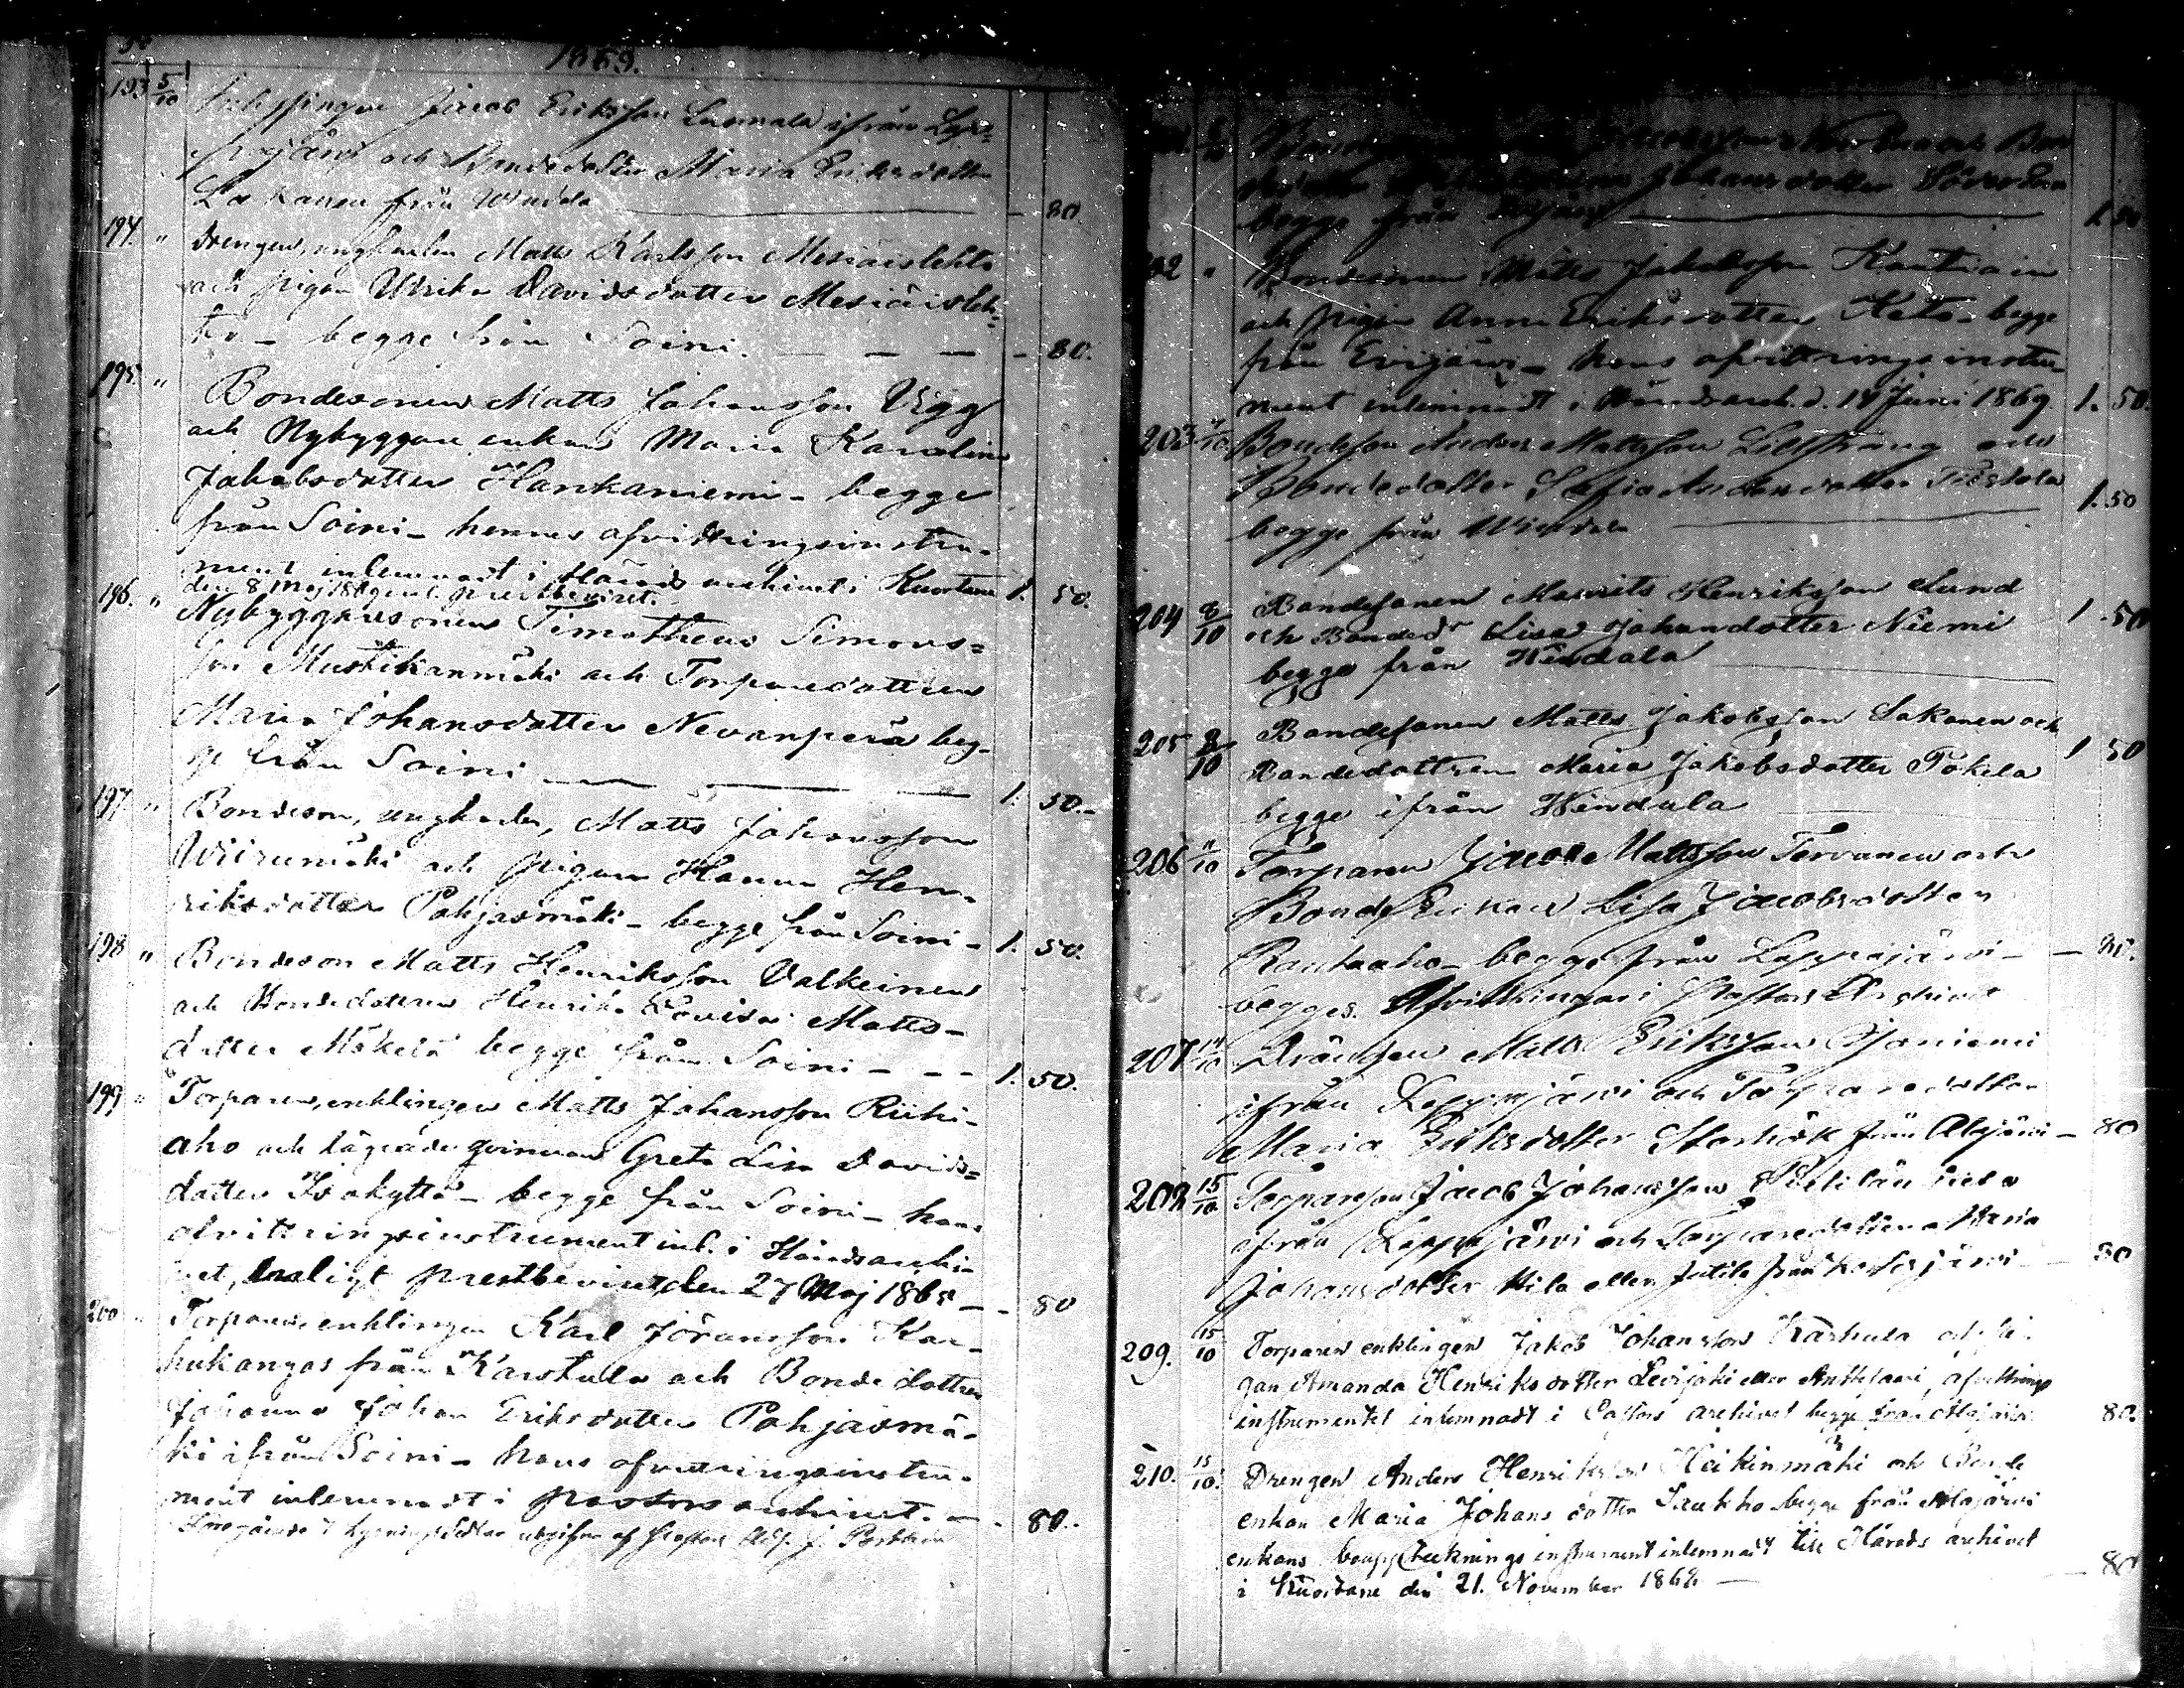 1869.
193 5/10 Inhysingen Jacob Eriksson Luomala ifrån Lap-
pajärvi och Bondedottren Maria Eriksdotter
Lakanen från Windala — 80
194. " Drengen, ungkarlen Matts Karlsson Mesiäislehto
och pigan Ulrika Davidsdotter Mesiäisleh-
to – begge från Soini. — 80.
195. " Bondesonen Matts Johansson Vigg
och Nybyggare enkan Maria Karolina
Jakobsdotter Hankaniemi – begge
från Soini – hennes afvittringsinstru-
ment inlemnadt i Härads archivet i Kuortane 1. 50.
den 8 Maj 1869 enl. prestbeviset.
196. " Nybyggaresonen Timotheus Simons-
son Mustikanmäki och Torparedottren
Maria Johansdotter Nevanperä beg-
ge från Soini — 1. 50.-
197. " Bondeson, ungkarlen, Matts Johansson
Wiirumäki och pigan Hanna Hen-
riksdotter Pohjasmäki – begge från Soini – 1. 50.
198 " Bondeson Matts Henriksson Valkeinen
och Bondedottren Henrika Lovisa Matts-
dotter Mäkelä begge från Soini – – – 1. 50.
199 " Torparen, enklingen Matts Johansson Riihi-
aho och lägrade qvinnan Greta Lisa Davids-
dotter Isokyttö – begge från Soini – hans
afvittringsinstrument inl. i Häradsarchi-
vet, enligt prestbeviset, den 27 Maj 1865 — 80
200 " Torparen enklingen Karl Jöransson Kar-
hukangas från Karstula och Bondedottren
Johanna Johan Eriksdotter Pohjasmä-
ki ifrån Soini – hans afvittringsinstru-
ment inlemnadt i pastors archivet. — 80.
Föregående 7 Lysningssedlar utgifna af Pastor Adj. J.
5/10 Johansdotter
begge från 1. 50
202 " Bondesonen Matts Jakobsson Kantiain
och pigan Anna Eriksdotter Keto – begge
från Evijärvi – hans afvittrings instru-
ment inlemnadt i Häradsarch. d. 14 Juni 1869. 1. 50.
203 /10 Bondeson Anders Mattsson Lillsträng och
Bondedotter Sofia Andersdotter
begge från Windala — 1. 50
204 8/10 Bondesonen Maurits Henriksson Lund
och Bondedr Lisa Johansdotter Niemi 1 50
begge från Windala
205 8/10 Bondesonen Matts Jakobsson Lakanen och
Bondedottren Maria Jakobsdotter Pokela 1 50
begge ifrån Windala
206 11/10 Torparen Jacob Mattsson Tervanen och
Bonde Enkan Lisa Jacobsdotter
Rautaaho – begge från Lappajärvi – — 80.
begges Afvittringar i Pastors Archivet
207 14/10 Drängen Matts Eriksson Ojaniemi
ifrån Lappajärvi och Torparedotter
Maria Eriksdotter Storbäk från Alajärvi – 80
208 15/10 Torpareson Jacob Johansson
ifrån Lappajärvi och Torparedottren Maria
Johansdotter Kila eller Jutila från Kortesjärvi – 80
209. 15/10 Torparen enklingen Jakob Johansson Karhula och pi-
gan Amanda Henriksdotter Levijoki eller Anttisaari, afvittrings
instrumentet inlemnadt i Pastors archivet begge från Alajärvi 80.
210. 15/10. Drengen Anders Henriksson Heikinmäki och Bonde
enkan Maria Johansdotter Saukko begge från Alajärvi
enkans bouppteknings instrument inlemnadt till Härads archivet
i Kuortane den 21. November 1868 — 80